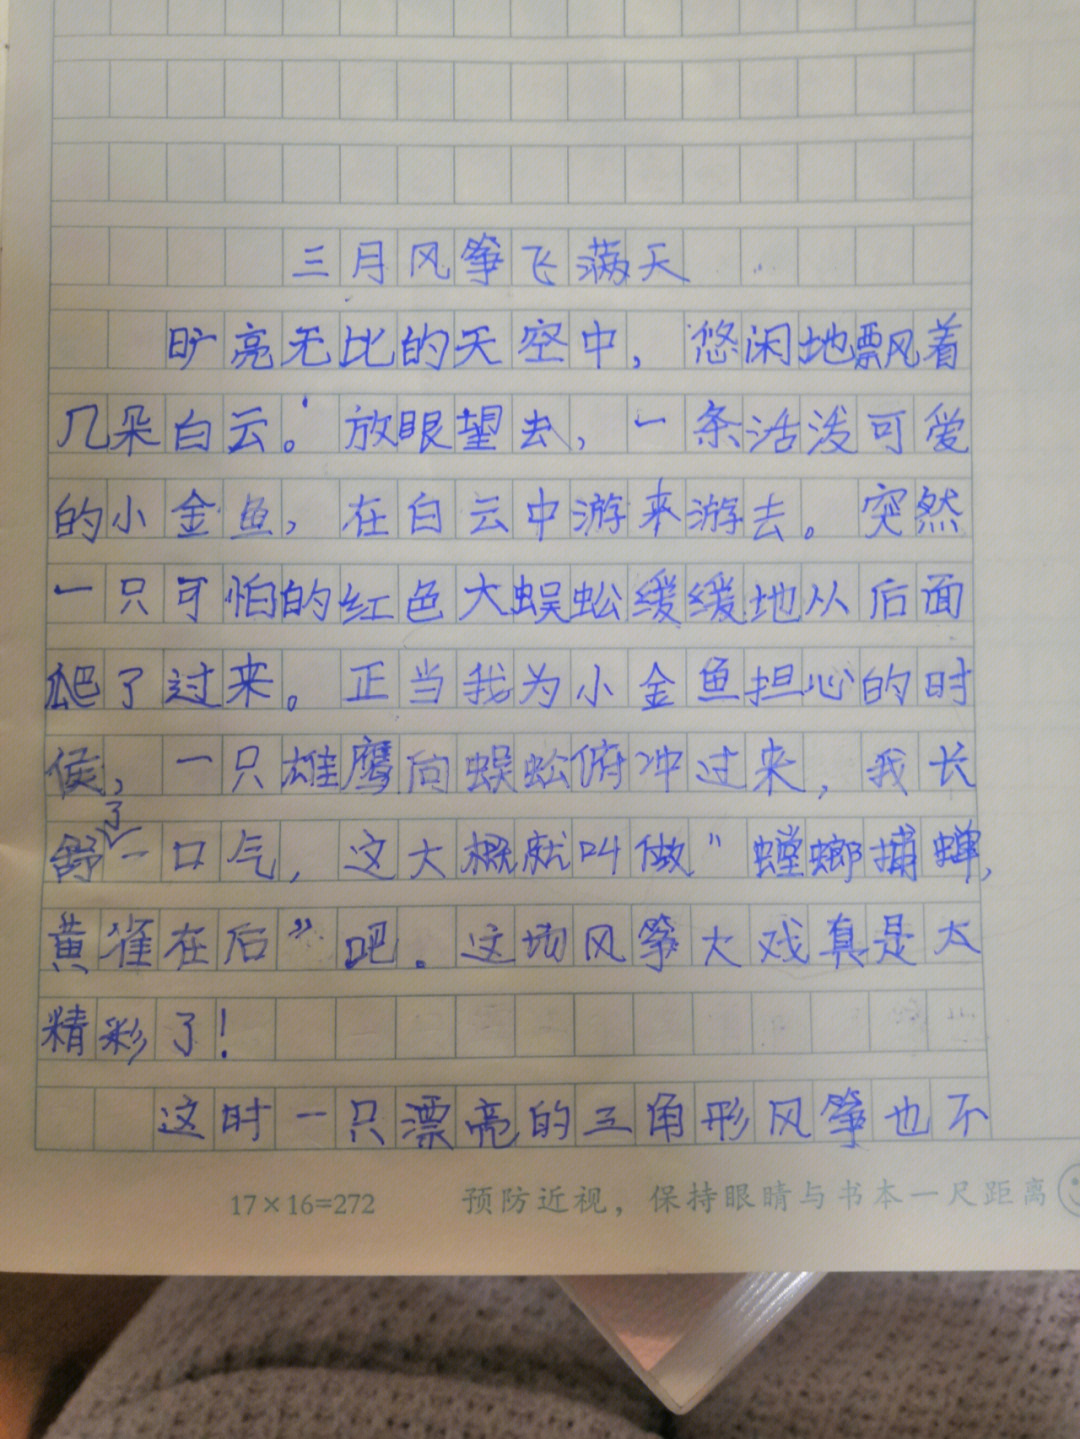 三月风筝飞满天
旷亮无比的天空中，悠闲地飘着
几朵白云。放眼望去，一条活泼可爱
的小金鱼，在白云中游来游去。突然
一只可怕的红色大蜈蚣缓缓地从后面
爬了过来。正当我为小金鱼担心的时
侯，一只雄鹰向蜈蚣俯冲过来，我长
舒了一口气，这大概就叫做"螳螂捕蝉，
黄雀在后"吧。这场风筝大戏真是太
精彩了！
这时一只漂亮的三角形风筝也不
17×16=272 预防近视，保持眼睛与书本一尺距离